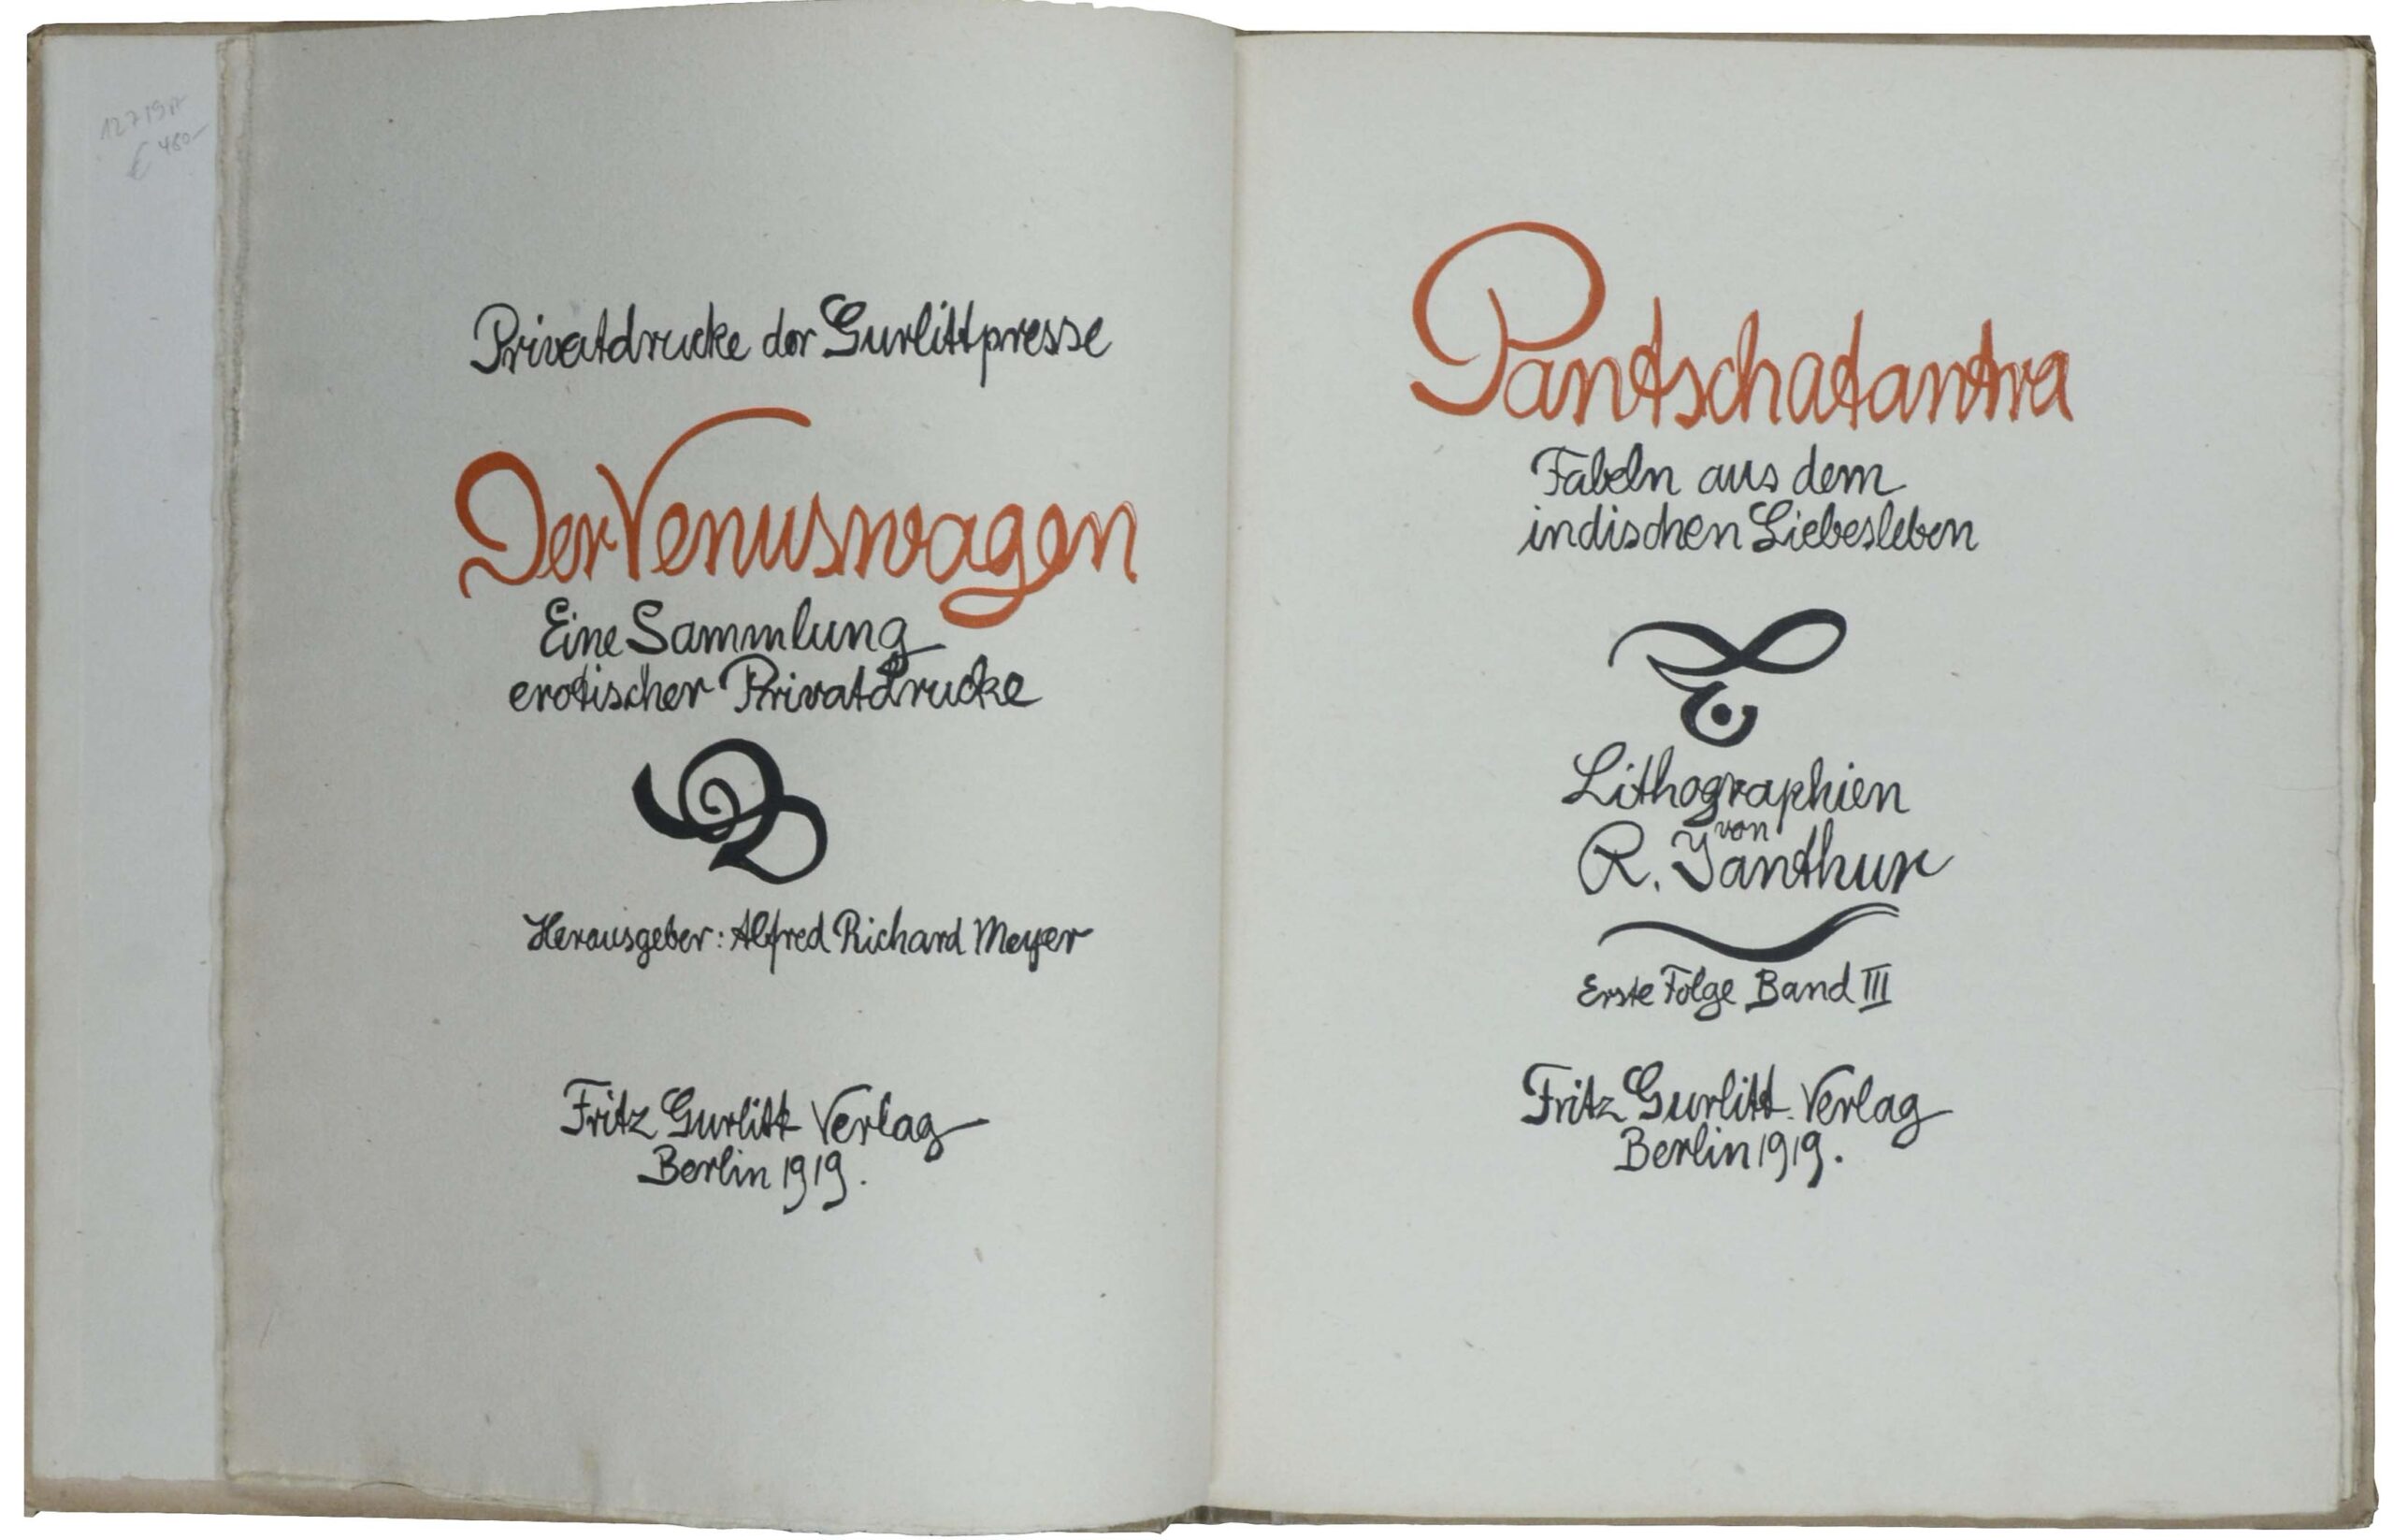 € 480-
Privatdrucke der Gurlittpresse
Der Venuswagen
Eine Sammlung
erotischer Privatdrucke
Herausgeber: Alfred Richard Meyer
Fritz Gurlitt Verlag
Berlin 1919.
Pantschatantra
Fabeln aus dem
indischen Liebesleben
Lithographien
von
R. Janthur
Erste Folge Band III
Fritz Gurlitt Verlag
Berlin 1919.